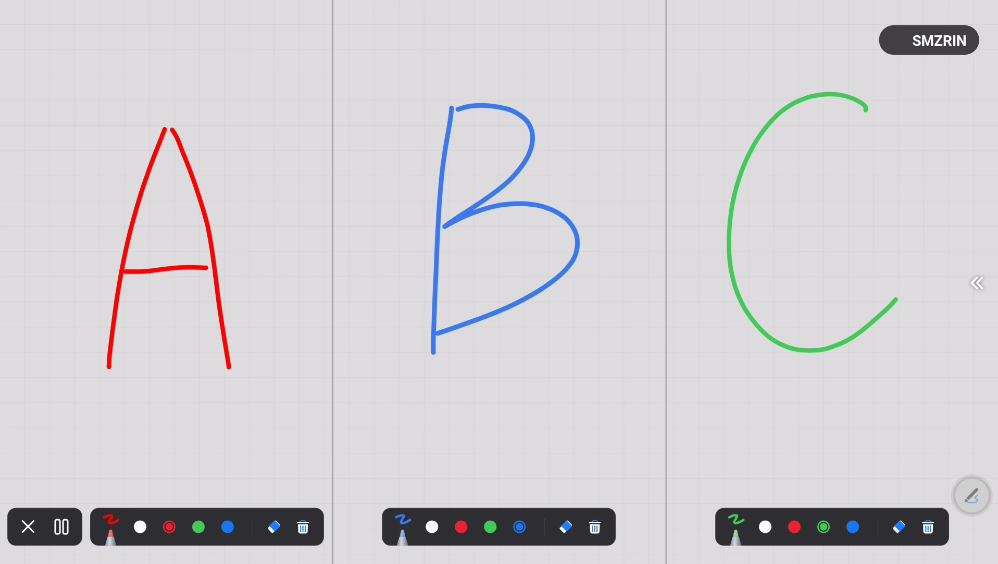 SMZRIN
A B C